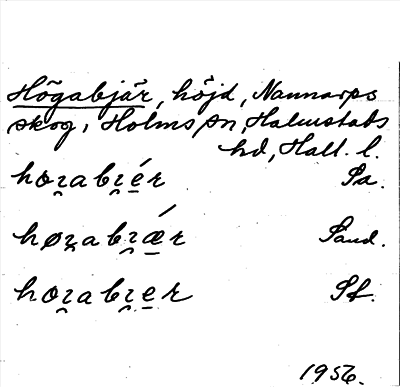 Högabjär, höjd, Nannarps
skog, Holms sn, Halmstads
hd, Hall. l.
hɷʒabʒér Sa.
høʒabʒǽr Sand.
hɷʒabʒer Sf.
1956.